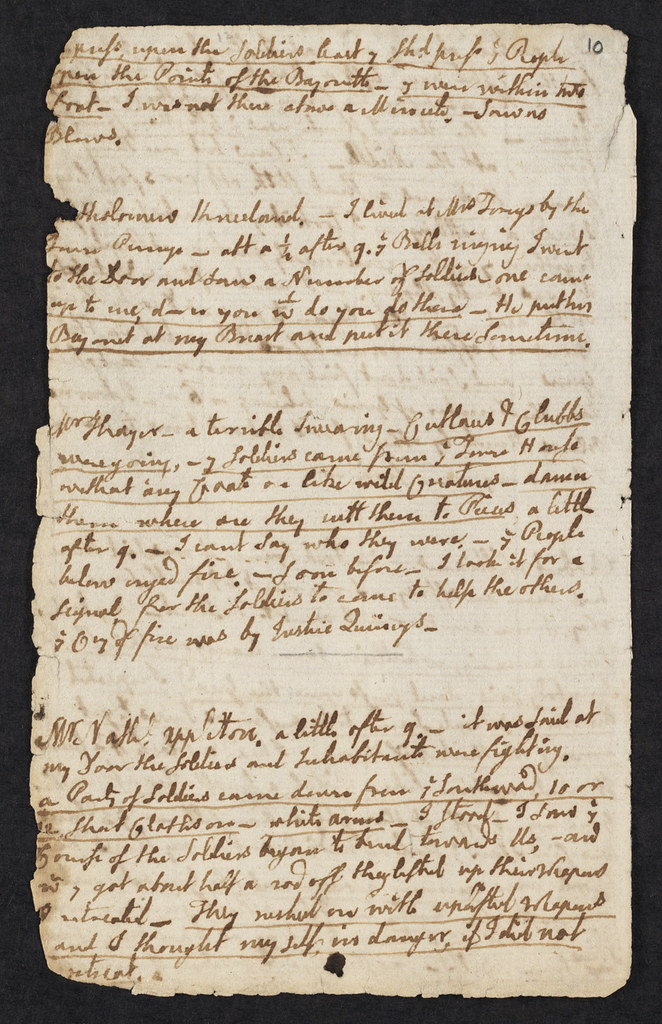 10
press upon the Soldiers least y shd press ye People
upon the Points of the Bayonetts – y were within two
Foot – I was not there above a Minute. – I saw no
Blows.
Kneeland. – I lived at Mrs by the
Town Pump – abt a ½ after 9. ye Bells ringing I went
to the Door and saw a Number of Soldiers one came
up to me, d—n you wt do you do there – He put his
Bay-net at my Breast and put it there Sometime.
Thayer – a terrible Swearing – Cutlaus & Clubbs
were going, – 7 Soldiers came from ye Town House
without any Coats on like wild Creatures – damn
them where are they cutt them to Pieces a little
after 9. – I cant say who they were. – ye People
below cryed fire. – Soon before – I took it for a
signal for the Soldiers to come to help the others.
ye Cry of fire was by Justice Quincys –
Mr Nathl Appleton. a little after 9. – it was said at
my Door the Soldiers and Inhabitants were fighting.
a Party of Soldiers came down from ye Southwd, 10 or
12, short Cloaths on – white arms – I stood – I saw ye
Course of the Soldiers began to bend towards Us, – and
wn y got about half a rod off they lifted up their Weapons
I retreated – They rushed on with uplifted Weapons
and I thought my self in danger, if I did not
retreat.